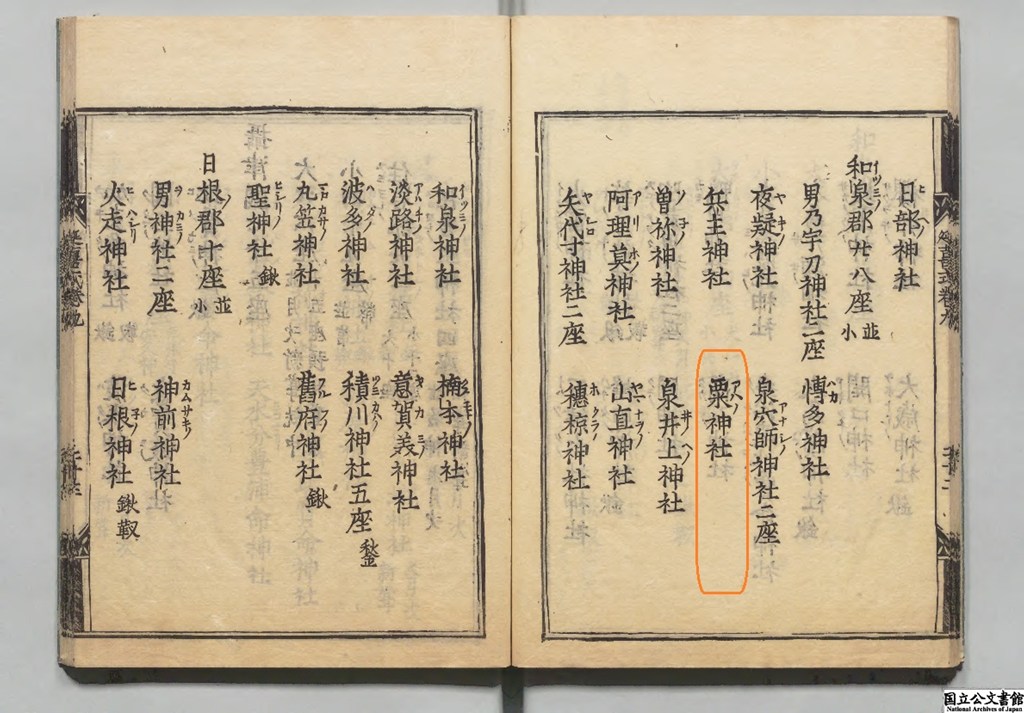 日部神社
和泉郡廿八座 並小
男乃宇刀神社二座 博多神社
夜疑神社 泉穴師神社二座
兵主神社 粟神社
曽祢神社 泉井上神社
阿理莫神社 山直神社
矢代寸神社二座 穗椋神社
和泉神社 楠本神社
淡路神社 意賀美神社
波多神社 積川神社五座 鍬
丸笠神社
聖神社 鍬 舊府神社 鍬
日根郡十座 並小
男神社二座 神前神社
火走神社 日根神社 鍬靫
国立公文書館
National Archives of Japan